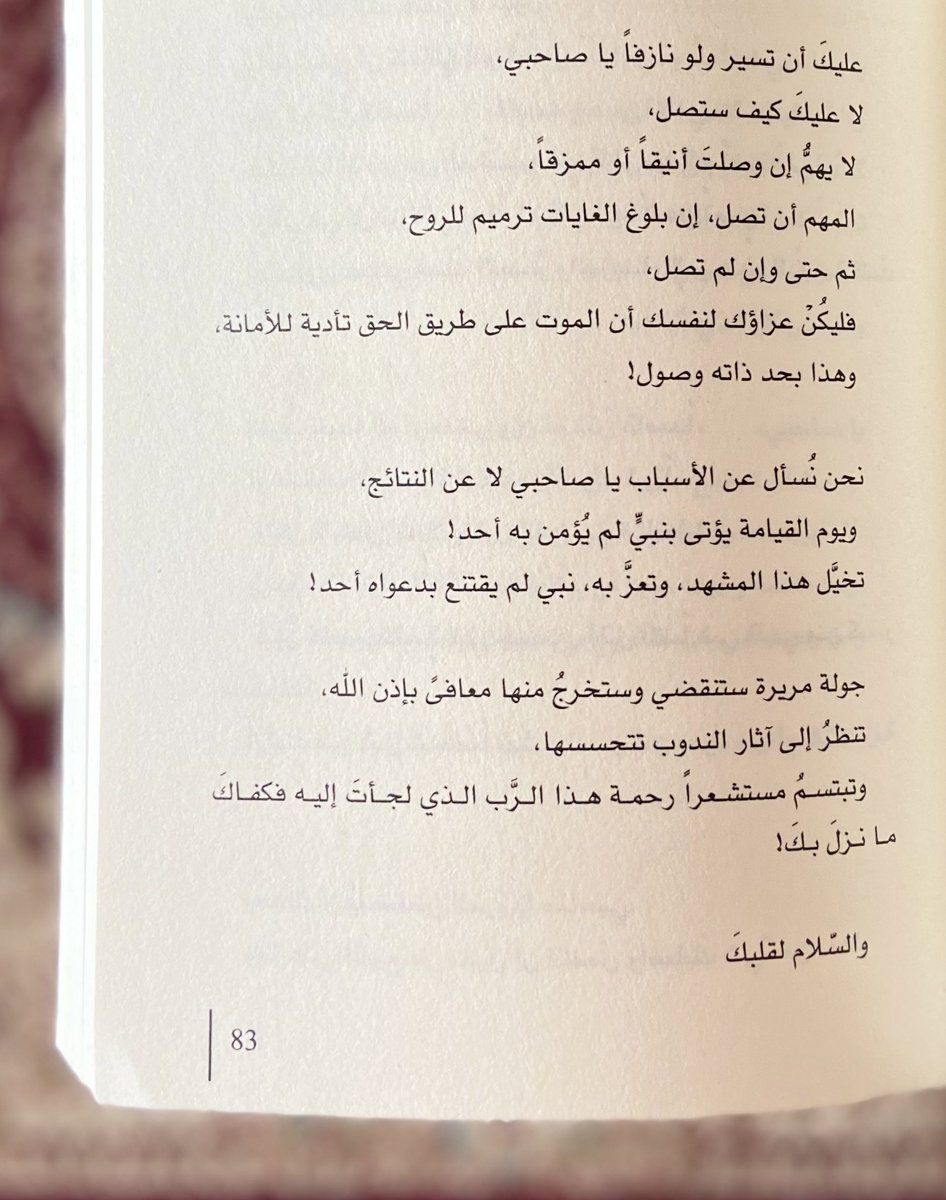 عليكَ أن تسير ولو نازفاً يا صاحبي،
لا عليكَ كيف ستصل،
لا يهمُّ إن وصلتَ أنيقاً أو ممزقاً،
المهم أن تصل، إن بلوغ الغايات ترميم للروح،
ثم حتى وإن لم تصل،
فليكُنْ عزاؤك لنفسك أن الموت على طريق الحق تأدية للأمانة،
وهذا بحد ذاته وصول!
نحن نُسأل عن الأسباب يا صاحبي لا عن النتائج،
ويوم القيامة يؤتى بنبيٍّ لم يُؤمن به أحد!
تخيَّل هذا المشهد، وتعزَّ به، نبي لم يقتنع بدعواه أحد!
جولة مريرة ستنقضي وستخرجُ منها معافىً بإذن الله،
تنظرُ إلى آثار الندوب تتحسسها،
وتبتسمُ مستشعراً رحمة هذا الرَّب الذي لجأتَ إليه فكفاكَ
ما نزلَ بكَ!
والسّلام لقلبكَ
83